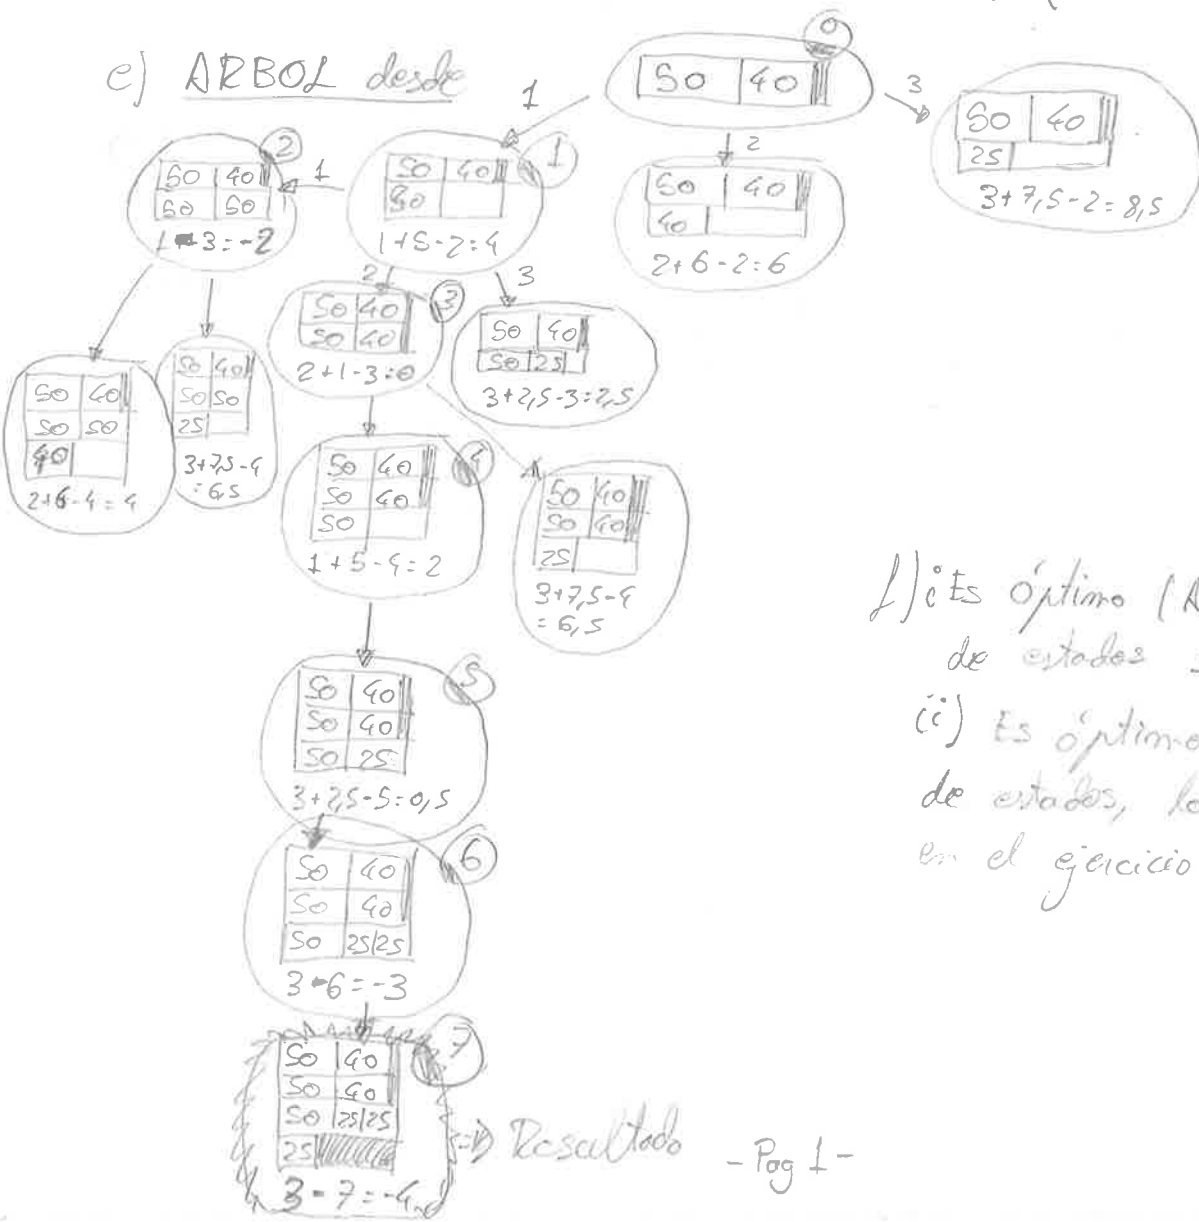 e) ARBOL desde
0
50 40
1
2
3
50 40
25
3+7,5-2=8,5
50 40
40
2+6-2=6
1
50 40
50
1+5-2=4
1
2
50 40
50 50
1-3=-2
2
3
3
50 40
50 40
2+1-3=0
50 40
50 25
3+2,5-3=2,5
50 40
50 50
40
2+6-4=4
50 40
50 50
25
3+7,5-4
=6,5
4
50 40
50 40
50
1+5-4=2
50 40
50 40
25
3+7,5-4
=6,5
5
50 40
50 40
50 25
3+2,5-5=0,5
6
50 40
50 40
50 25/25
3-6=-3
7
50 40
50 40
50 25/25
25
3-7=-4
=> Resultado
-Pag 1-
f) ¿Es óptimo (A
de estados
(i) Es óptimo
de estados, lo
en el ejercicio